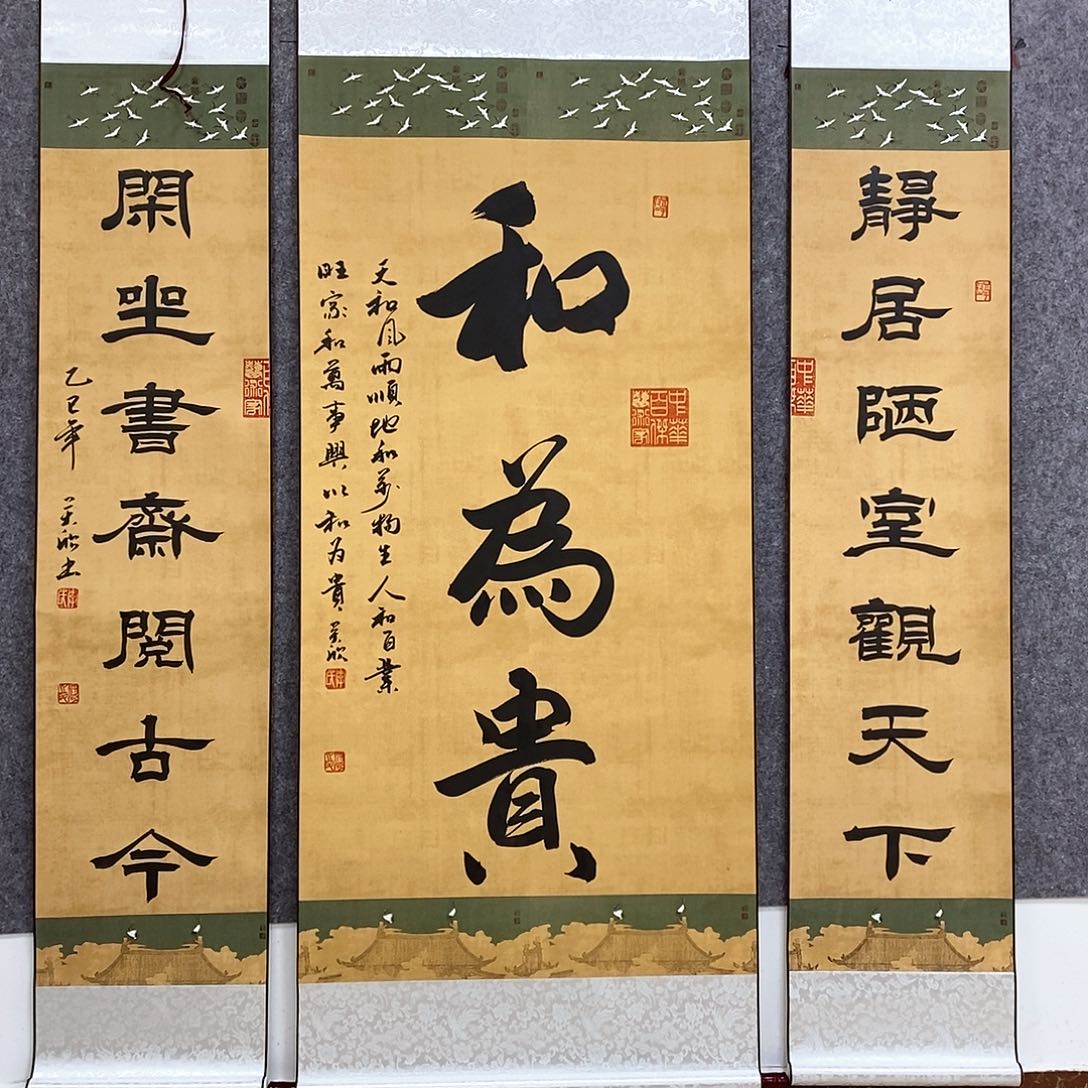 靜居陋室觀天下
和為貴
天和風雨順地和萬物生人和百業
旺家和萬事興以和为貴
閑坐書齋閱古今
乙巳年
中華
百傑